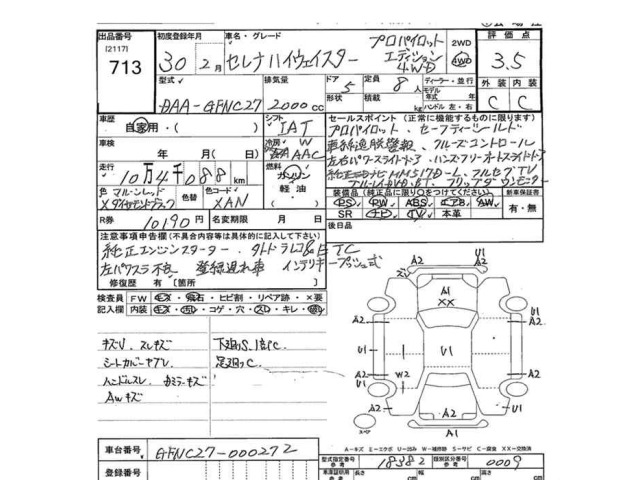 出品番号 初度登録年月 車名・グレード プロパイロット 2WD 評価点
[2117]
713 30年2月 セレナハイウェイスター エディション 4WD 4WD 3.5
型式 排気量 ドア 定員 ディーラー・並行 外装 内装
DAA-GFNC27 2000cc 5 8人 モデル年 年 C C
形状 積載 kg ハンドル 左・右
車歴 シフト セールスポイント(正常に機能するものに限ります)
自家用・( ) IAT プロパイロット、セーフティシールド
車検 冷房 W 車線逸脱警報、クルーズコントロール
年 月 日( ) AAC 左右パワースライドドア、ハンズフリーオートスライドドア
走行 燃料 純正ナビ MM517D-L フルセグTV
10万4千088km ガソリン
軽油 ブルーレイ DVD BT フリップダウンモニター
色 マルーンレッド 色コード 装備品(純正品に限り○をつけてください) 新車保証書
Xダイヤモンドブラック XAN PS PW ABS エアB AW 有・無
R券 10190円 名変期限 月 日 SR ナビ TV 本革
後日品
注意事項申告欄(不具合内容等は具体的に記入して下さい)
純正エンジンスターター、タテドラレコ&ETC
左パワスラ不良 登録遅れ車 インテリキープッシュ式
修復歴 有〔箇所 〕
検査員 FW キズ・飛石・ヒビ割・リペア跡・×要
記入欄 内装 キズ・汚レ・コゲ・穴・スレ・キレ・
キズU、スレキズ 下廻りS、1部C
シートカバーヤブレ 足廻りC
ハンドルスレ、カミラーキズ
AWキズ
U1
A1
XX
U1
A2 A2
U1
U1
W2
A2 A2
U1
A2
A1
スペア
A-キズ E-エクボ U-凹み W-補修跡 S-サビ C-腐食 XX-交換済
車台番号 GFNC27-000272
型式指定番号 18382 類別区分番号 0009
登録番号
長さ 幅 高さ
cm cm cm